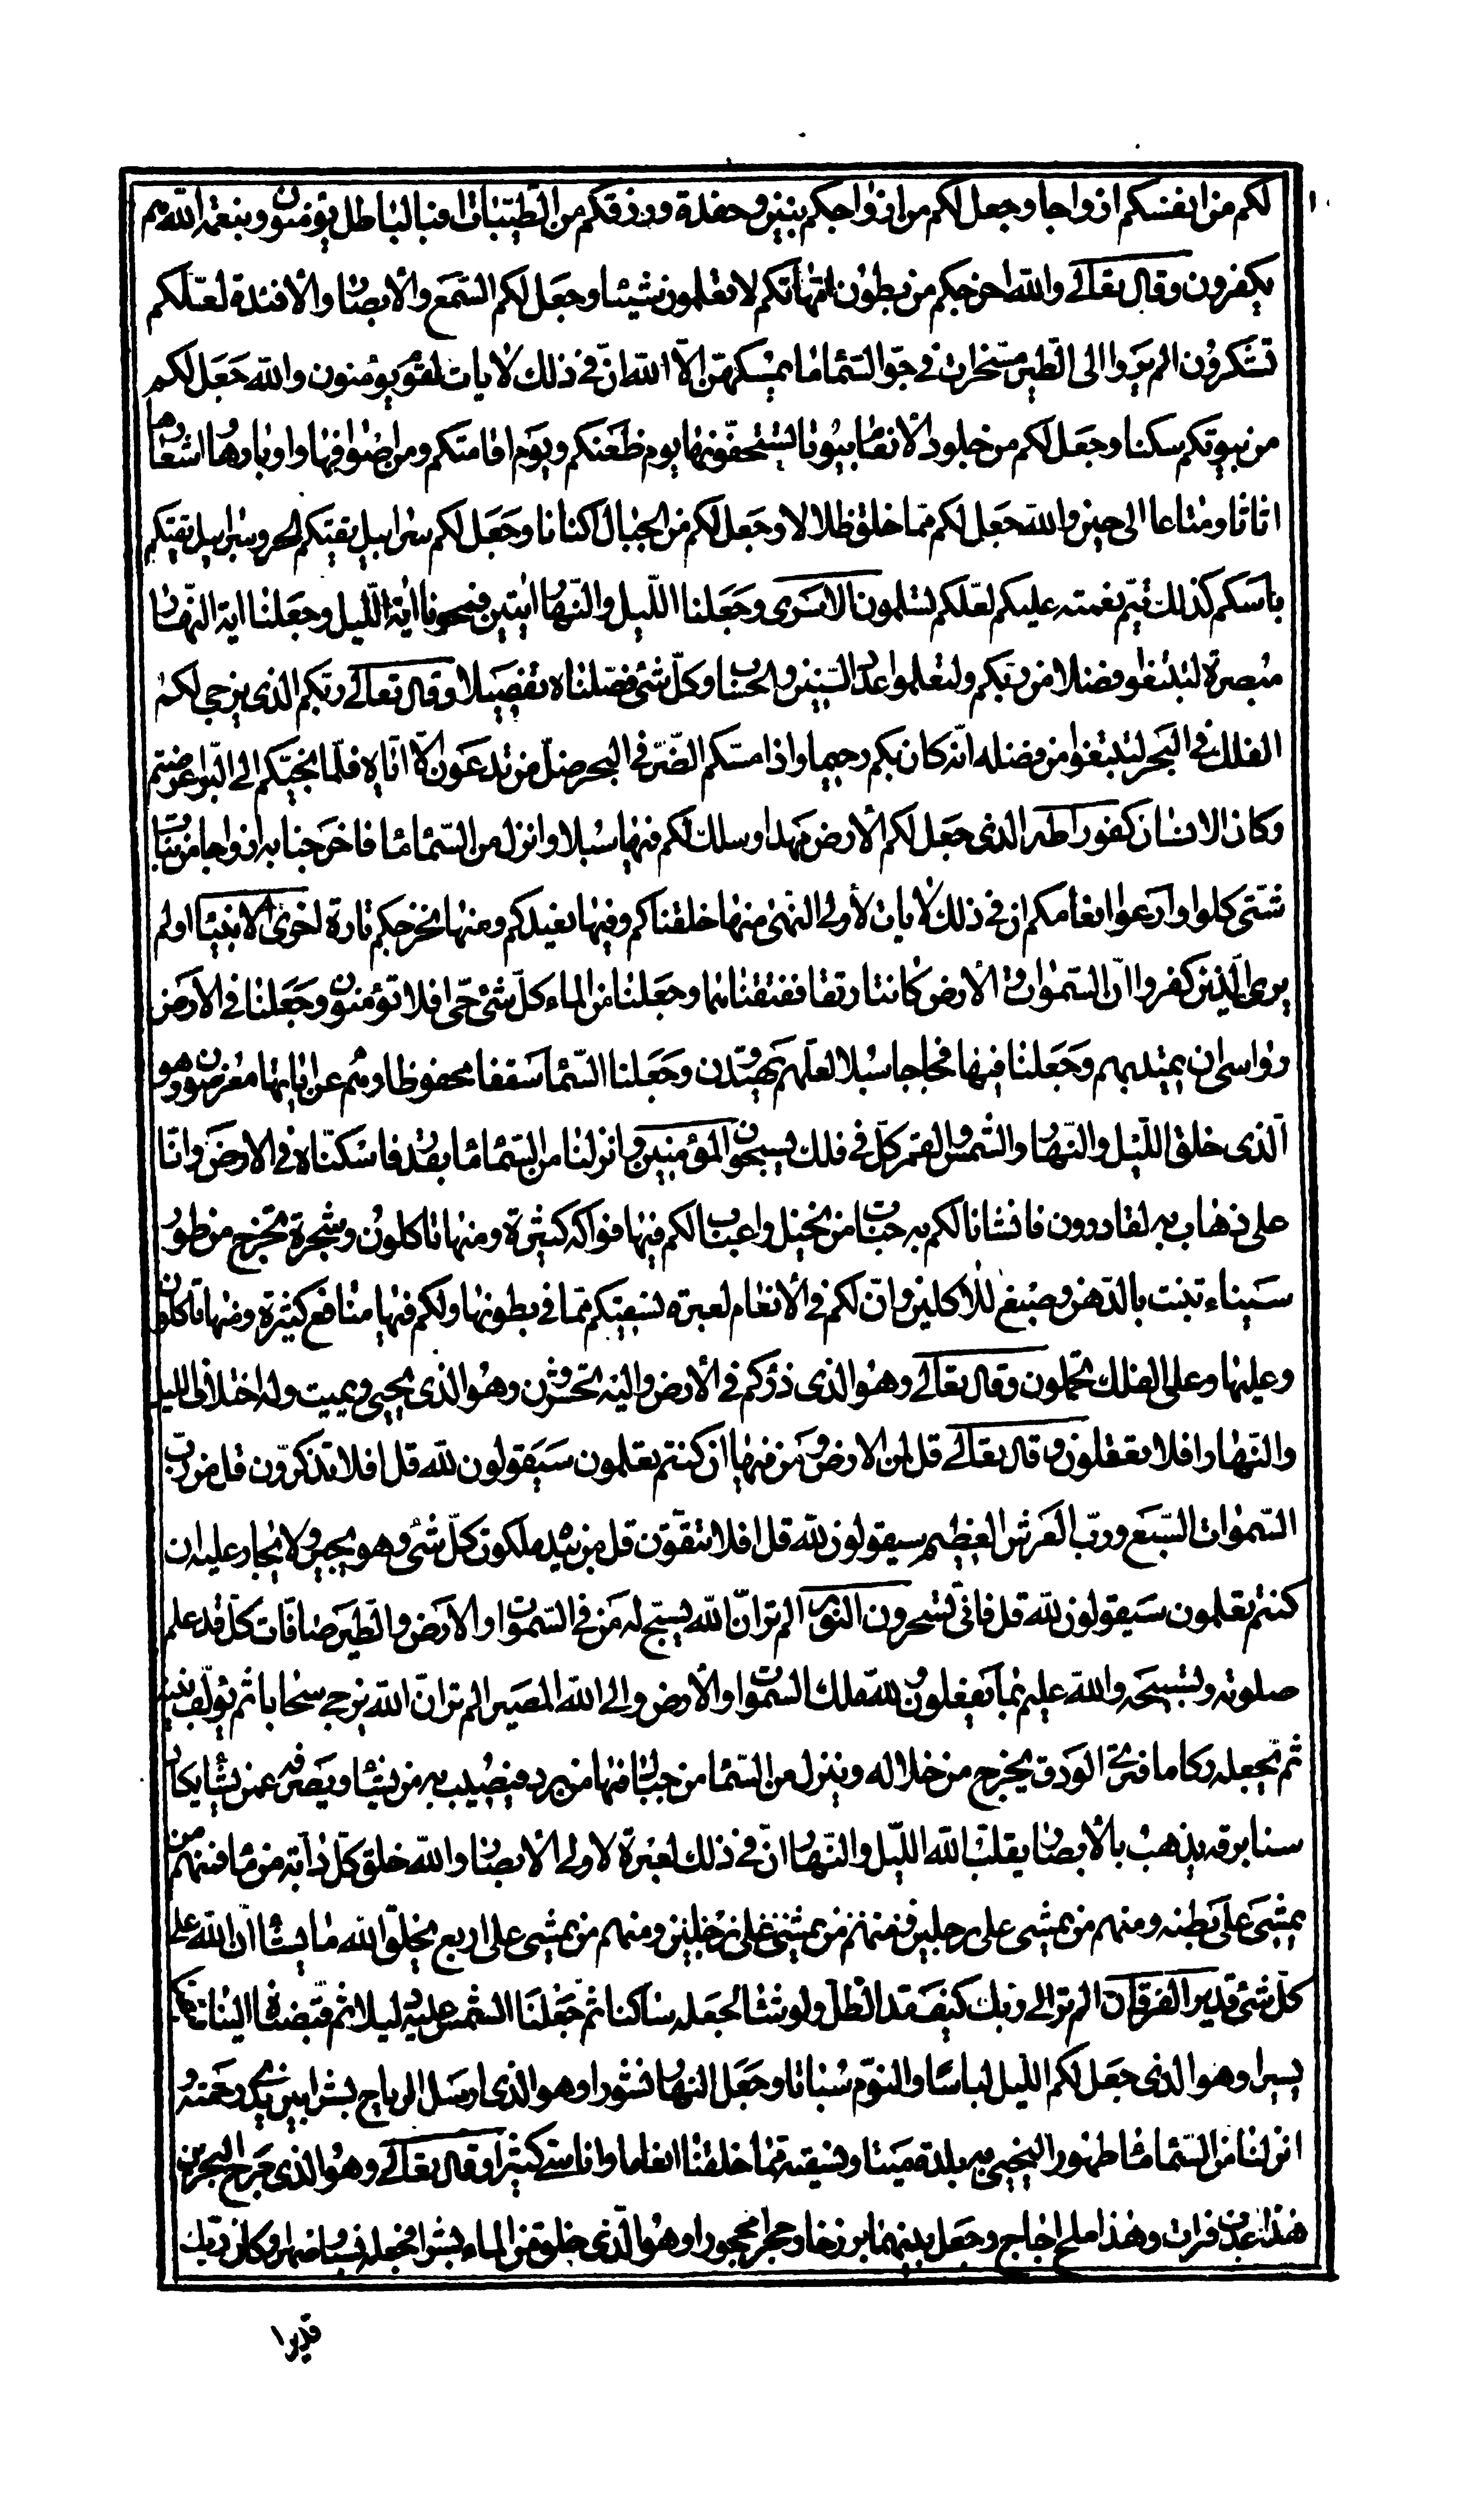 لكم من انفسكم ازواجا وجعل لكم من ازواجكم بنين وحفدة ورزقكم من الطيبات افبالباطل يؤمنون وبنعمة الله هم
يكفرون وقال تعالى والله اخرجكم من بطون امهاتكم لا تعلمون شيئا وجعل لكم السمع والابصار والافئدة لعلكم
تشكرون الم يروا الى الطير مسخرات في جو السماء ما يمسكهن الا الله ان في ذلك لايات لقوم يؤمنون والله جعل لكم
من بيوتكم سكنا وجعل لكم من جلود الانعام بيوتا تستخفونها يوم ظعنكم ويوم اقامتكم ومن اصوافها واوبارها واشعارها
اثاثا ومتاعا الى حين والله جعل لكم مما خلق ظلالا وجعل لكم من الجبال اكنانا وجعل لكم سرابيل تقيكم الحر وسرابيل تقيكم
باسكم كذلك يتم نعمته عليكم لعلكم تسلمون الاسرى وجعلنا الليل والنهار ايتين فمحونا اية الليل وجعلنا اية النهار
مبصرة لتبتغوا فضلا من ربكم ولتعلموا عدد السنين والحساب وكل شئ فصلناه تفصيلا وقال تعالى ربكم الذى يزجي لكم
الفلك في البحر لتبتغوا من فضله انه كان بكم رحيما واذا مسكم الضر في البحر ضل من تدعون الا اياه فلما نجيكم الى البر اعرضتم
وكان الانسان كفورا طه الذى جعل لكم الارض مهدا وسلك لكم فيها سبلا وانزل من السماء ماء فاخرجنا به ازواجا من نبات
شتى كلوا وارعوا انعامكم ان في ذلك لايات لاولى النهى منها خلقناكم وفيها نعيدكم ومنها نخرجكم تارة اخرى الانبياء اولم
يرى الذين كفروا ان السموات والارض كانتا رتقا ففتقناهما وجعلنا من الماء كل شئ حي افلا تؤمنون وجعلنا في الارض
رواسى ان يميد بهم وجعلنا فيها فجاجا سبلا لعلهم يهتدون وجعلنا السماء سقفا محفوظا وهم عن اياتها معرضون وهو
الذى خلق الليل والنهار والشمس والقمر كل في فلك يسبحون المؤمنين وانزلنا من السماء ماء بقدر فاسكناه في الارض وانا
على ذهاب به لقادرون فانشانا لكم به جنات من نخيل واعناب لكم فيها فواكه كثيرة ومنها تاكلون وشجرة تخرج من طور
سيناء تنبت بالدهن وصبغ للاكلين وان لكم في الانعام لعبرة نسقيكم مما في بطونها ولكم فيها منافع كثيرة ومنها تاكلون
وعليها وعلى الفلك تحملون وقال تعالى وهو الذى ذرأكم في الارض واليه تحشرون وهو الذى يحيى ويميت وله اختلاف الليل
والنهار افلا تعقلون وقال تعالى قل لمن الارض ومن فيها ان كنتم تعلمون سيقولون لله قل افلا تذكرون قل من رب
السموات السبع ورب العرش العظيم سيقولون لله قل افلا تتقون قل من بيده ملكوت كل شئ وهو يجير ولا يجار عليه ان
كنتم تعلمون سيقولون لله قل فانى تسحرون النور الم تر ان الله يسبح له من في السموات والارض والطير صافات كل قد علم
صلوته وتسبيحه والله عليم بما يفعلون لله ملك السموات والارض والى الله المصير الم تر ان الله يزجي سحابا ثم يؤلف بينه
ثم يجعله ركاما فترى الودق يخرج من خلاله وينزل من السماء من جبال فيها من برد فيصيب به من يشاء ويصرفه عن من يشاء يكاد
سنا برقه يذهب بالابصار يقلب الله الليل والنهار ان في ذلك لعبرة لاولى الابصار والله خلق كل دابة من ماء فمنهم من
يمشى على بطنه ومنهم من يمشى على رجلين فمنهم من يمشى على رجلين ومنهم من يمشى على اربع يخلق الله ما يشاء ان الله على
كل شئ قدير الفرقان الم تر الى ربك كيف مد الظل ولو شاء لجعله ساكنا ثم جعلنا الشمس عليه دليلا ثم قبضناه الينا قبضا
يسيرا وهو الذى جعل لكم الليل لباسا والنوم سباتا وجعل النهار نشورا وهو الذى ارسل الرياح بشرا بين يدى رحمته و
انزلنا من السماء ماء طهورا لنحيى به بلدة ميتا ونسقيه مما خلقنا انعاما واناسى كثيرا وقال تعالى وهو الذى مرج البحرين
هذا عذب فرات وهذا ملح اجاج وجعل بينهما برزخا وحجرا محجورا وهو الذى خلق من الماء بشرا فجعله نسبا وصهرا وكان ربك
قديرا